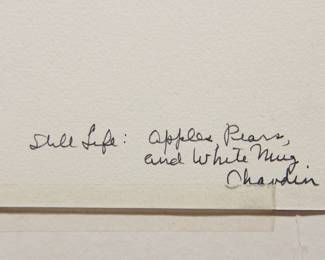 Still Life: Apples, Pears,
and White Mug
Chardin